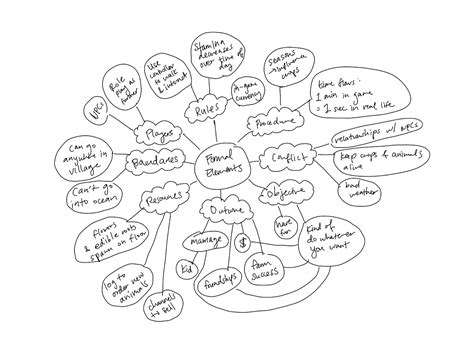 Formal
Elements
Rules
Stamina
decreases
over time of
day
Use
controller
to walk
& interact
Role
play as
farmer
NPCs
Players
in-game
currency
Procedure
seasons
influence
crops
time flows:
1 min in game
= 1 sec in real life
Conflict
relationships w/ NPCs
keep crops & animals
alive
bad
weather
Boundaries
Can go
anywhere in
village
Can't go
into ocean
Resources
flowers
& edible
spawn on
log to
order new
animals
channels
to sell
Outcome
marriage
kid
friendships
$
farm
success
Objective
have
fun
kind of
do whatever
you want